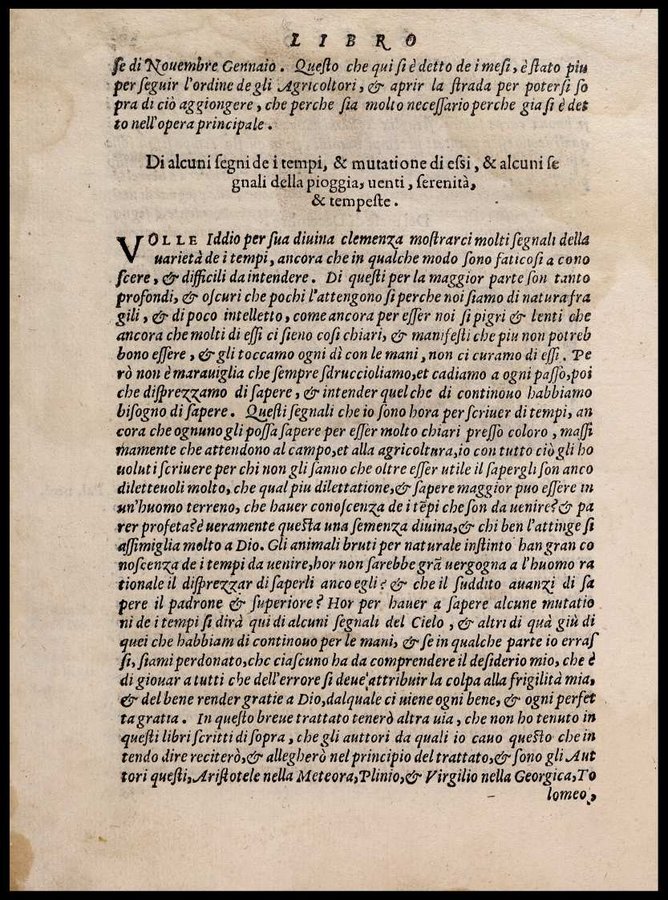 LIBRO
se di Nouembre Gennaio. Questo che qui si è detto de i mesi, è stato piu
per seguir l'ordine de gli Agricoltori, & aprir la strada per potersi so
pra di ciò aggiongere, che perche sia molto necessario perche gia si è det
to nell'opera principale.
Di alcuni segni de i tempi, & mutatione di essi, & alcuni se
gnali della pioggia, uenti, serenità,
& tempeste.
VOLLE Iddio per sua diuina clemenza mostrarci molti segnali della
uarietà de i tempi, ancora che in qualche modo sono faticosi a cono
scere, & difficili da intendere. Di questi per la maggior parte son tanto
profondi, & oscuri che pochi l'attengono si perche noi siamo di natura fra
gili, & di poco intelletto, come ancora per esser noi si pigri & lenti che
ancora che molti di essi ci sieno cosi chiari, & manifesti che piu non potreb
bono essere, & gli toccamo ogni dì con le mani, non ci curamo di essi. Pe
rò non è marauiglia che sempre sdruccioliamo, et cadiamo a ogni passo, poi
che disprezzamo di sapere, & intender quel che di continouo habbiamo
bisogno di sapere. Questi segnali che io sono hora per scriuer di tempi, an
cora che ognuno gli possa sapere per esser molto chiari presso coloro, massi
mamente che attendono al campo, et alla agricoltura, io con tutto ciò gli ho
uoluti scriuere per chi non gli sanno che oltre esser utile il sapergli son anco
diletteuoli molto, che qual piu dilettatione, & sapere maggior puo essere in
un'huomo terreno, che hauer conoscenza de i tẽpi che son da uenire? & pa
rer profeta? è ueramente questa una semenza diuina, & chi ben l'attinge si
assimiglia molto a Dio. Gli animali bruti per naturale instinto han gran co
noscenza de i tempi da uenire, hor non sarebbe grã uergogna a l'huomo ra
tionale il disprezzar di saperli anco egli? & che il suddito auanzi di sa
pere il padrone & superiore? Hor per hauer a sapere alcune mutatio
ni de i tempi si dirà qui di alcuni segnali del Cielo, & altri di quà giù di
quei che habbiam di continouo per le mani, & se in qualche parte io erras
si, siami perdonato, che ciascuno ha da comprendere il desiderio mio, che è
di giouar a tutti che dell'errore si deue attribuir la colpa alla frigilità mia,
& del bene render gratie a Dio, dal quale ci uiene ogni bene, & ogni perfet
ta gratta. In questo breue trattato tenerò altra uia, che non ho tenuto in
questi libri scritti di sopra, che gli auttori da quali io cauo questo che in
tendo dire reciterò, & allegherò nel principio del trattato, & sono gli Aut
tori questi, Aristotele nella Meteora, Plinio, & Virgilio nella Georgica, To
lomeo,